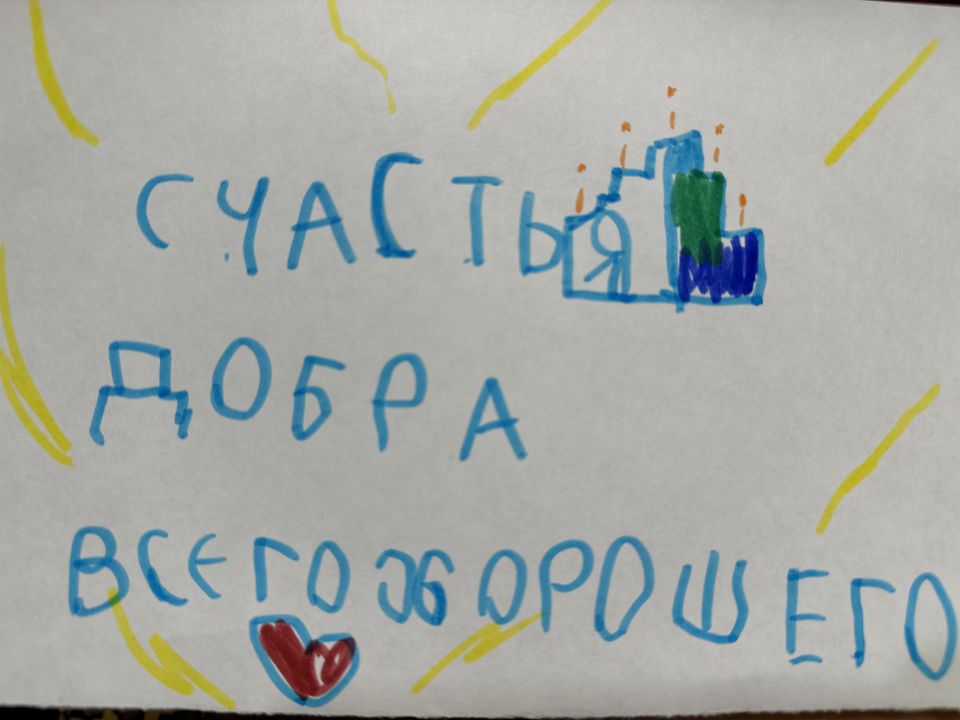 СЧАСТЬЯ
ДОБРА
ВСЕГО ХОРОШЕГО